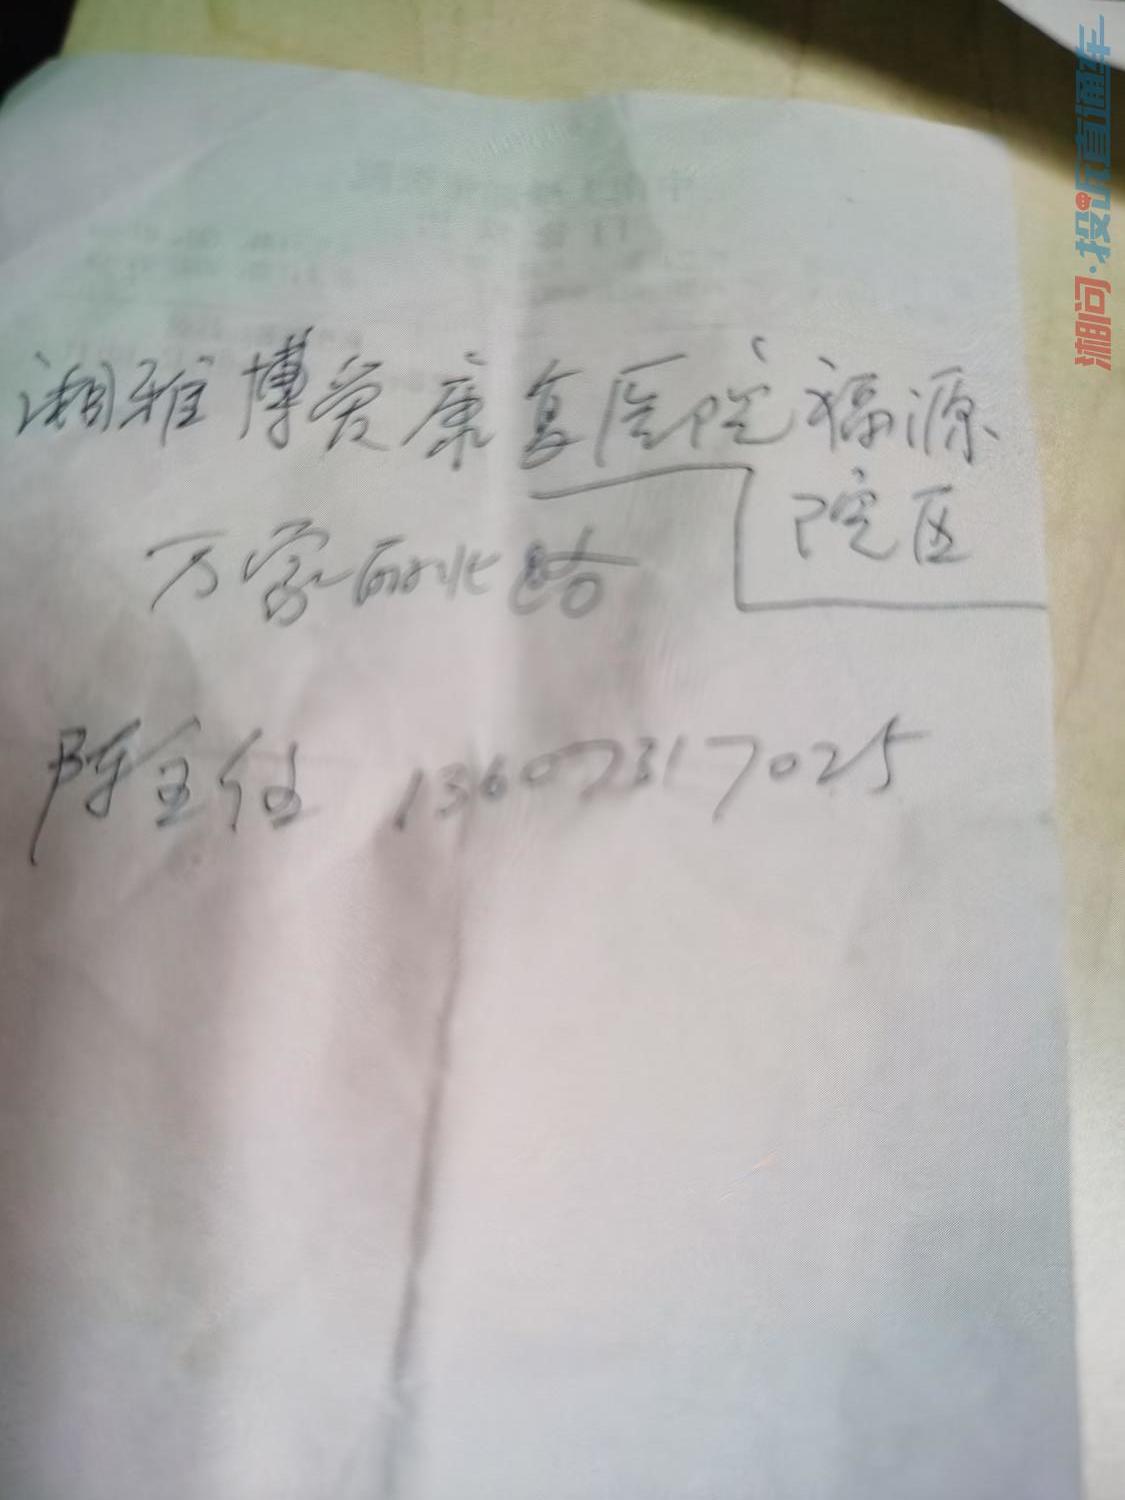 湘雅博爱康复医院福源
院区
万家丽北路
陈主任 13607317025
湘问·投诉直通车